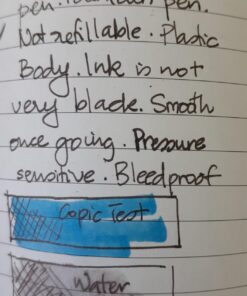 pen. fountain pen.
Not refillable. Plastic
Body. Ink is not
very blade. Smooth
once going. Pressure
sensitive. Bleedproof
Copic Test
Water